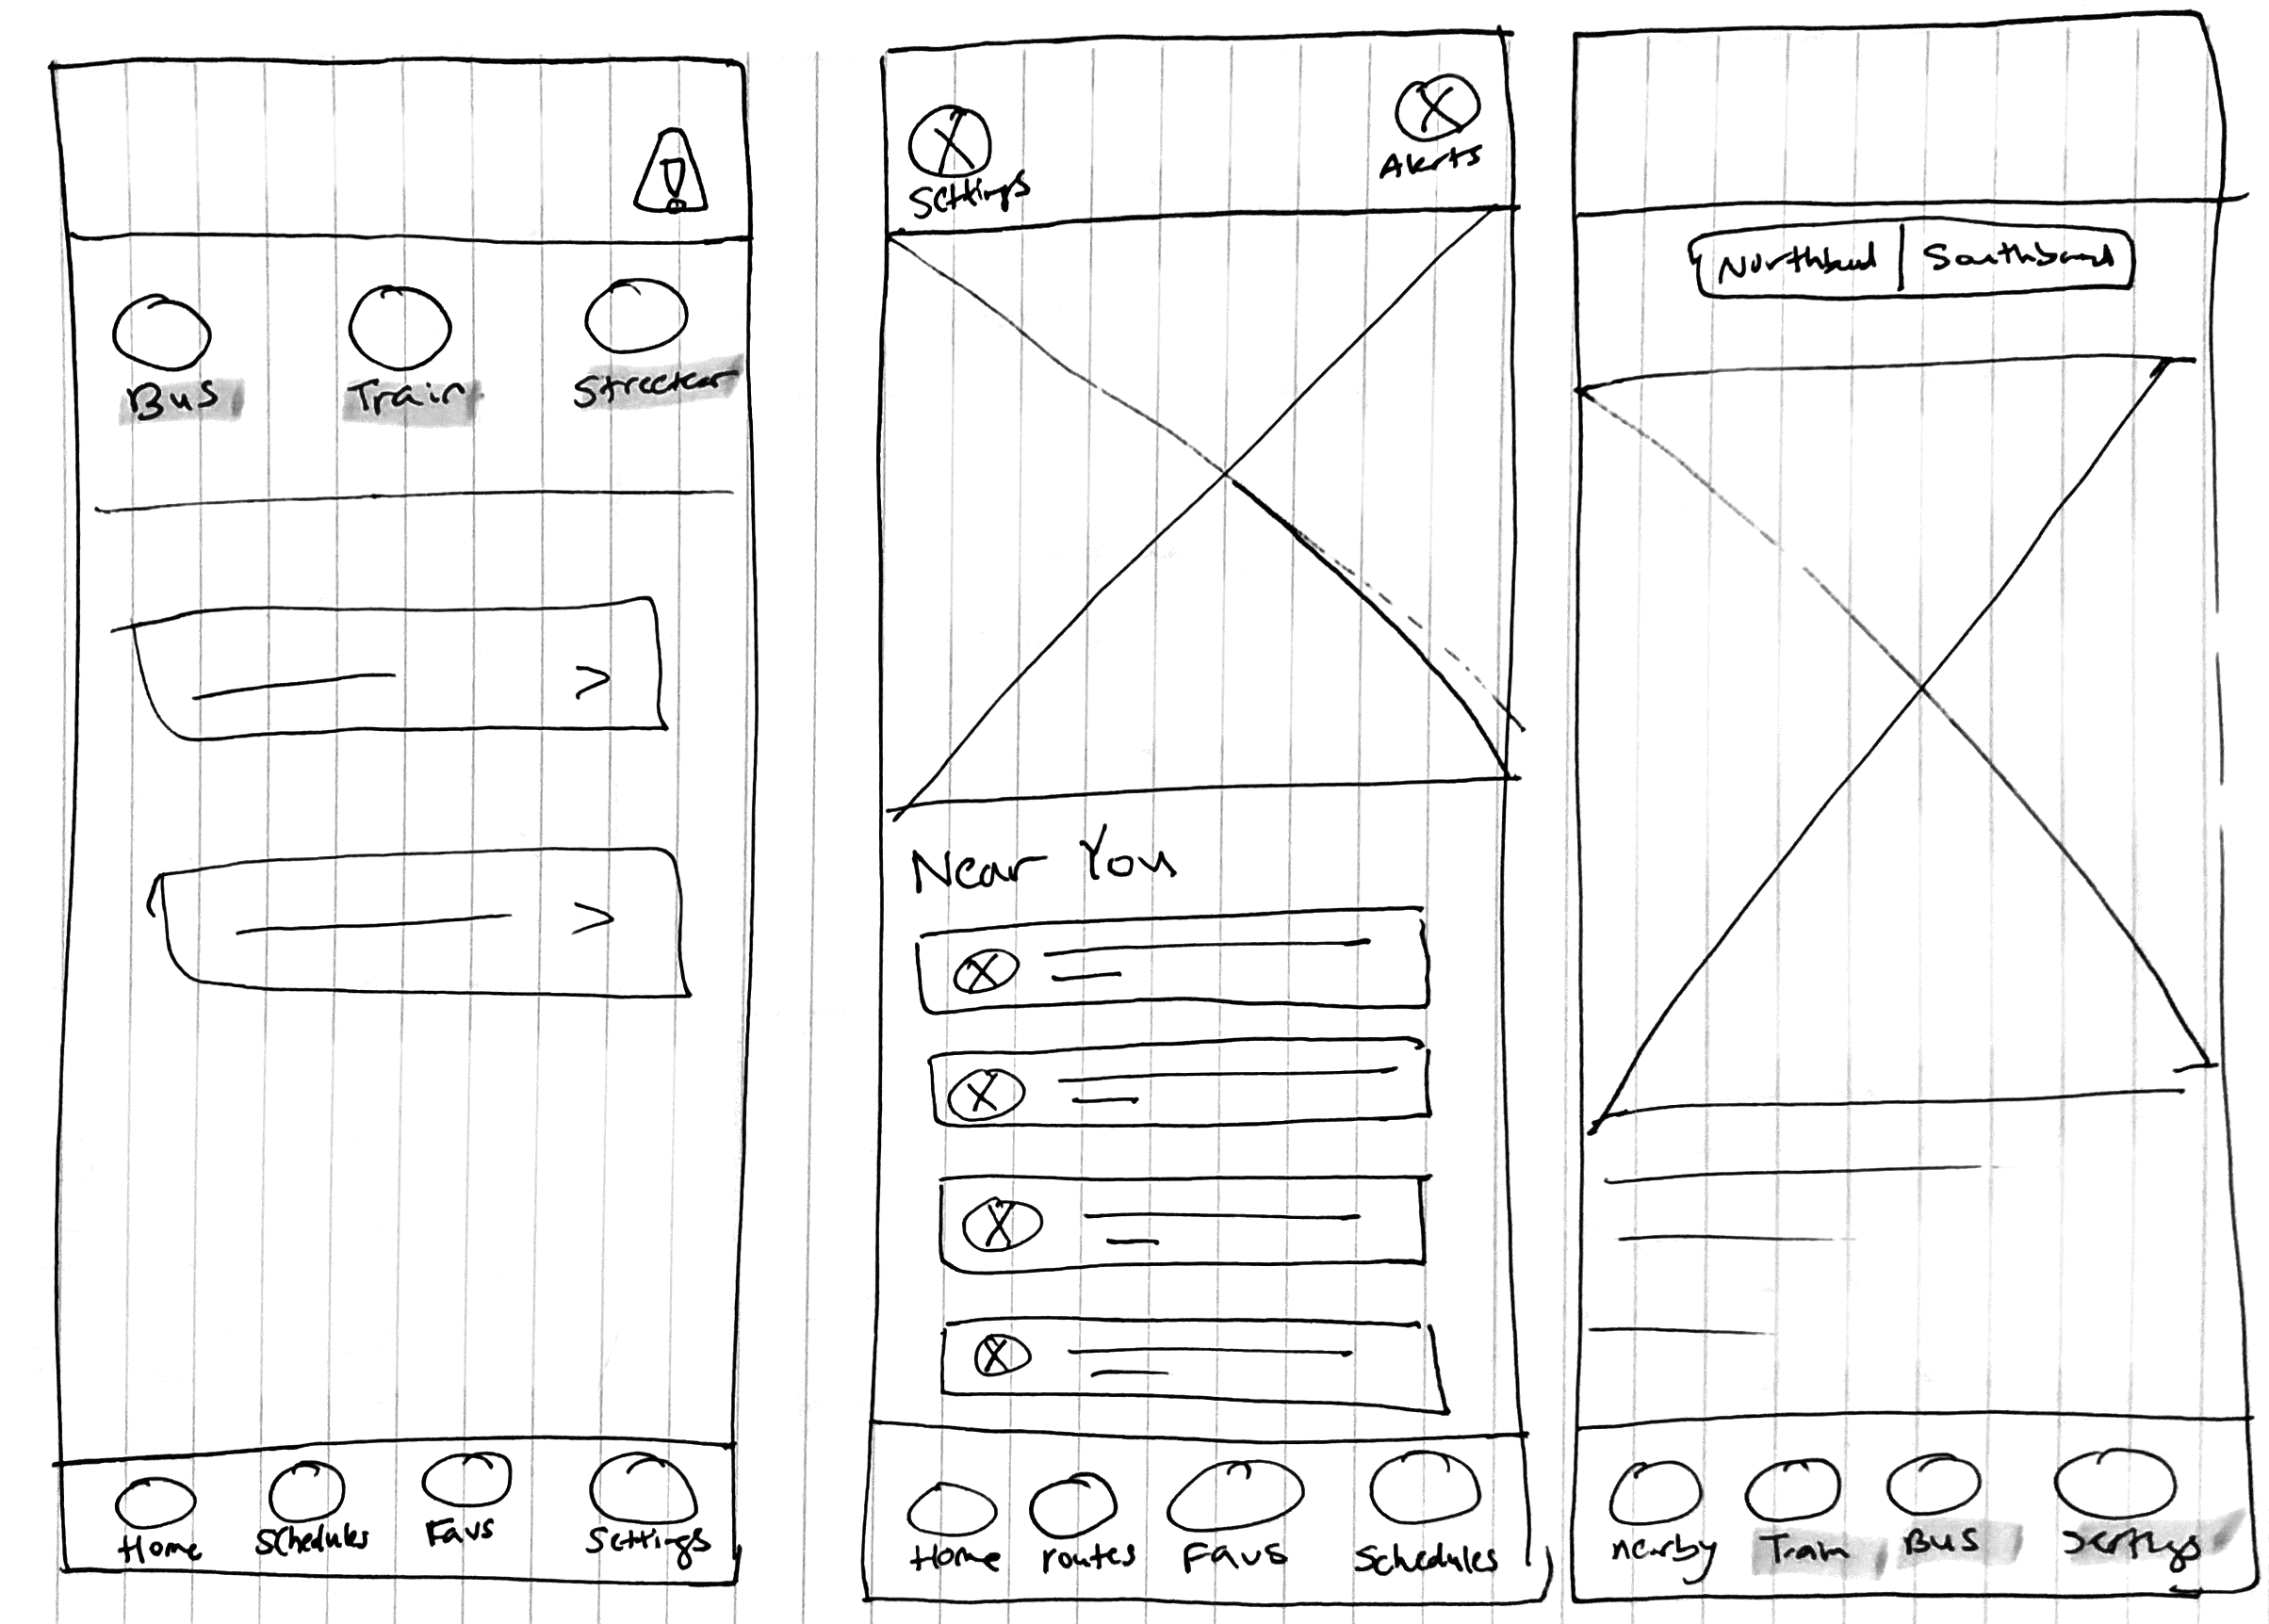 Bus Train Streetcar
Home Schedules Favs Settings
Settings Alerts
Near You
Home routes Favs Schedules
Northbound | Southbound
nearby Train Bus Settings